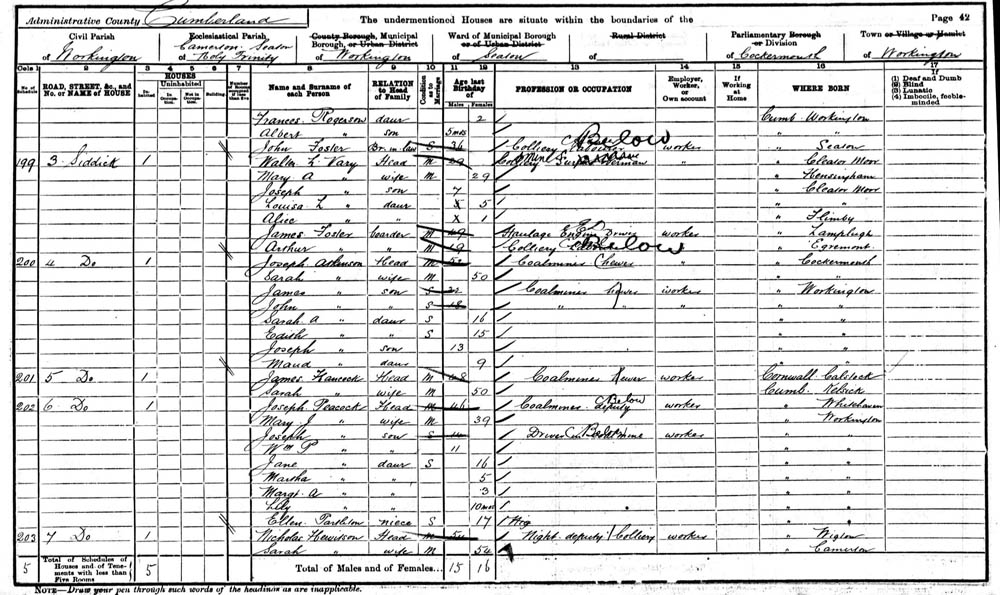 Administrative County Cumberland The undermentioned Houses are situate within the boundaries of the Page 42
Civil Parish of Workington
Ecclesiastical Parish Camerton Seaton of Holy Trinity
County Borough, Municipal Borough, or Urban District of Workington
Ward of Municipal Borough or of Urban District of Seaton
Rural District of
Parliamentary Borough or Division of Cockermouth
Town or Village or Hamlet of Workington
Cols 1 2 3 4 5 6 7 8 9 10 11 12 13 14 15 16 17
No. of Schedule ROAD, STREET, &c., and No. or NAME of HOUSE HOUSES Inhabited Uninhabited In Occupation Not in Occupation Building Name and Surname of each Person RELATION to Head of Family Condition as to Marriage Age last Birthday of Males Females PROFESSION OR OCCUPATION Employer, Worker, or Own account If Working at Home WHERE BORN If (1) Deaf and Dumb (2) Blind (3) Lunatic (4) Imbecile, feeble-minded
Frances Rogerson daur 2 Cumb Workington
Albert " son 5mos " "
John Foster Br-in-law S 36 Colliery Below worker " Seaton
199 3 Siddick 1 Head M 29 Colliery " Cleator Moor
Mary A " wife M 29 " Hensingham
Joseph " son 7 " Cleator Moor
Louisa L " daur X 5 " "
Alice " " X 1 " Flimby
James Foster boarder M 49 Haulage worker " Lamplugh
Arthur " " M 19 Colliery Below " Egremont
200 4 Do 1 Joseph Atkinson Head M Coalminer Hewer " " Cockermouth
Sarah " wife M 50 " "
James " son S 22 Coalminer hewer worker " Workington
John " " S 18 " " " "
Sarah A " daur S 16 " "
Edith " " S 15 " "
Joseph " son 13 " "
Maud " daur 9 " "
201 5 Do 1 James Hancock Head M 48 Coalminer Hewer worker Cornwall Calstock
Sarah " wife M 50 Cumb. Kelsick
202 6 Do 1 Joseph Peacock Head M 46 Coalmines deputy Below worker " Whitehaven
Mary J " wife M 39 " Workington
Joseph " son S 14 Driver Below mine worker " "
Wm P " " 11 " "
Jane " daur S 16 " "
Martha " " 5 " "
Margt A " " 3 " "
Lily " " 10 mos " "
Ellen niece S 17 " "
203 7 Do 1 Nicholas Hewitson Head M 54 Night deputy Colliery worker " Wigton
Sarah " wife M 54 " Camerton
5 Total of Schedules of Houses and of Tenements with less than Five Rooms 5 Total of Males and of Females... 15 16
NOTE—Draw your pen through such words of the headings as are inapplicable.